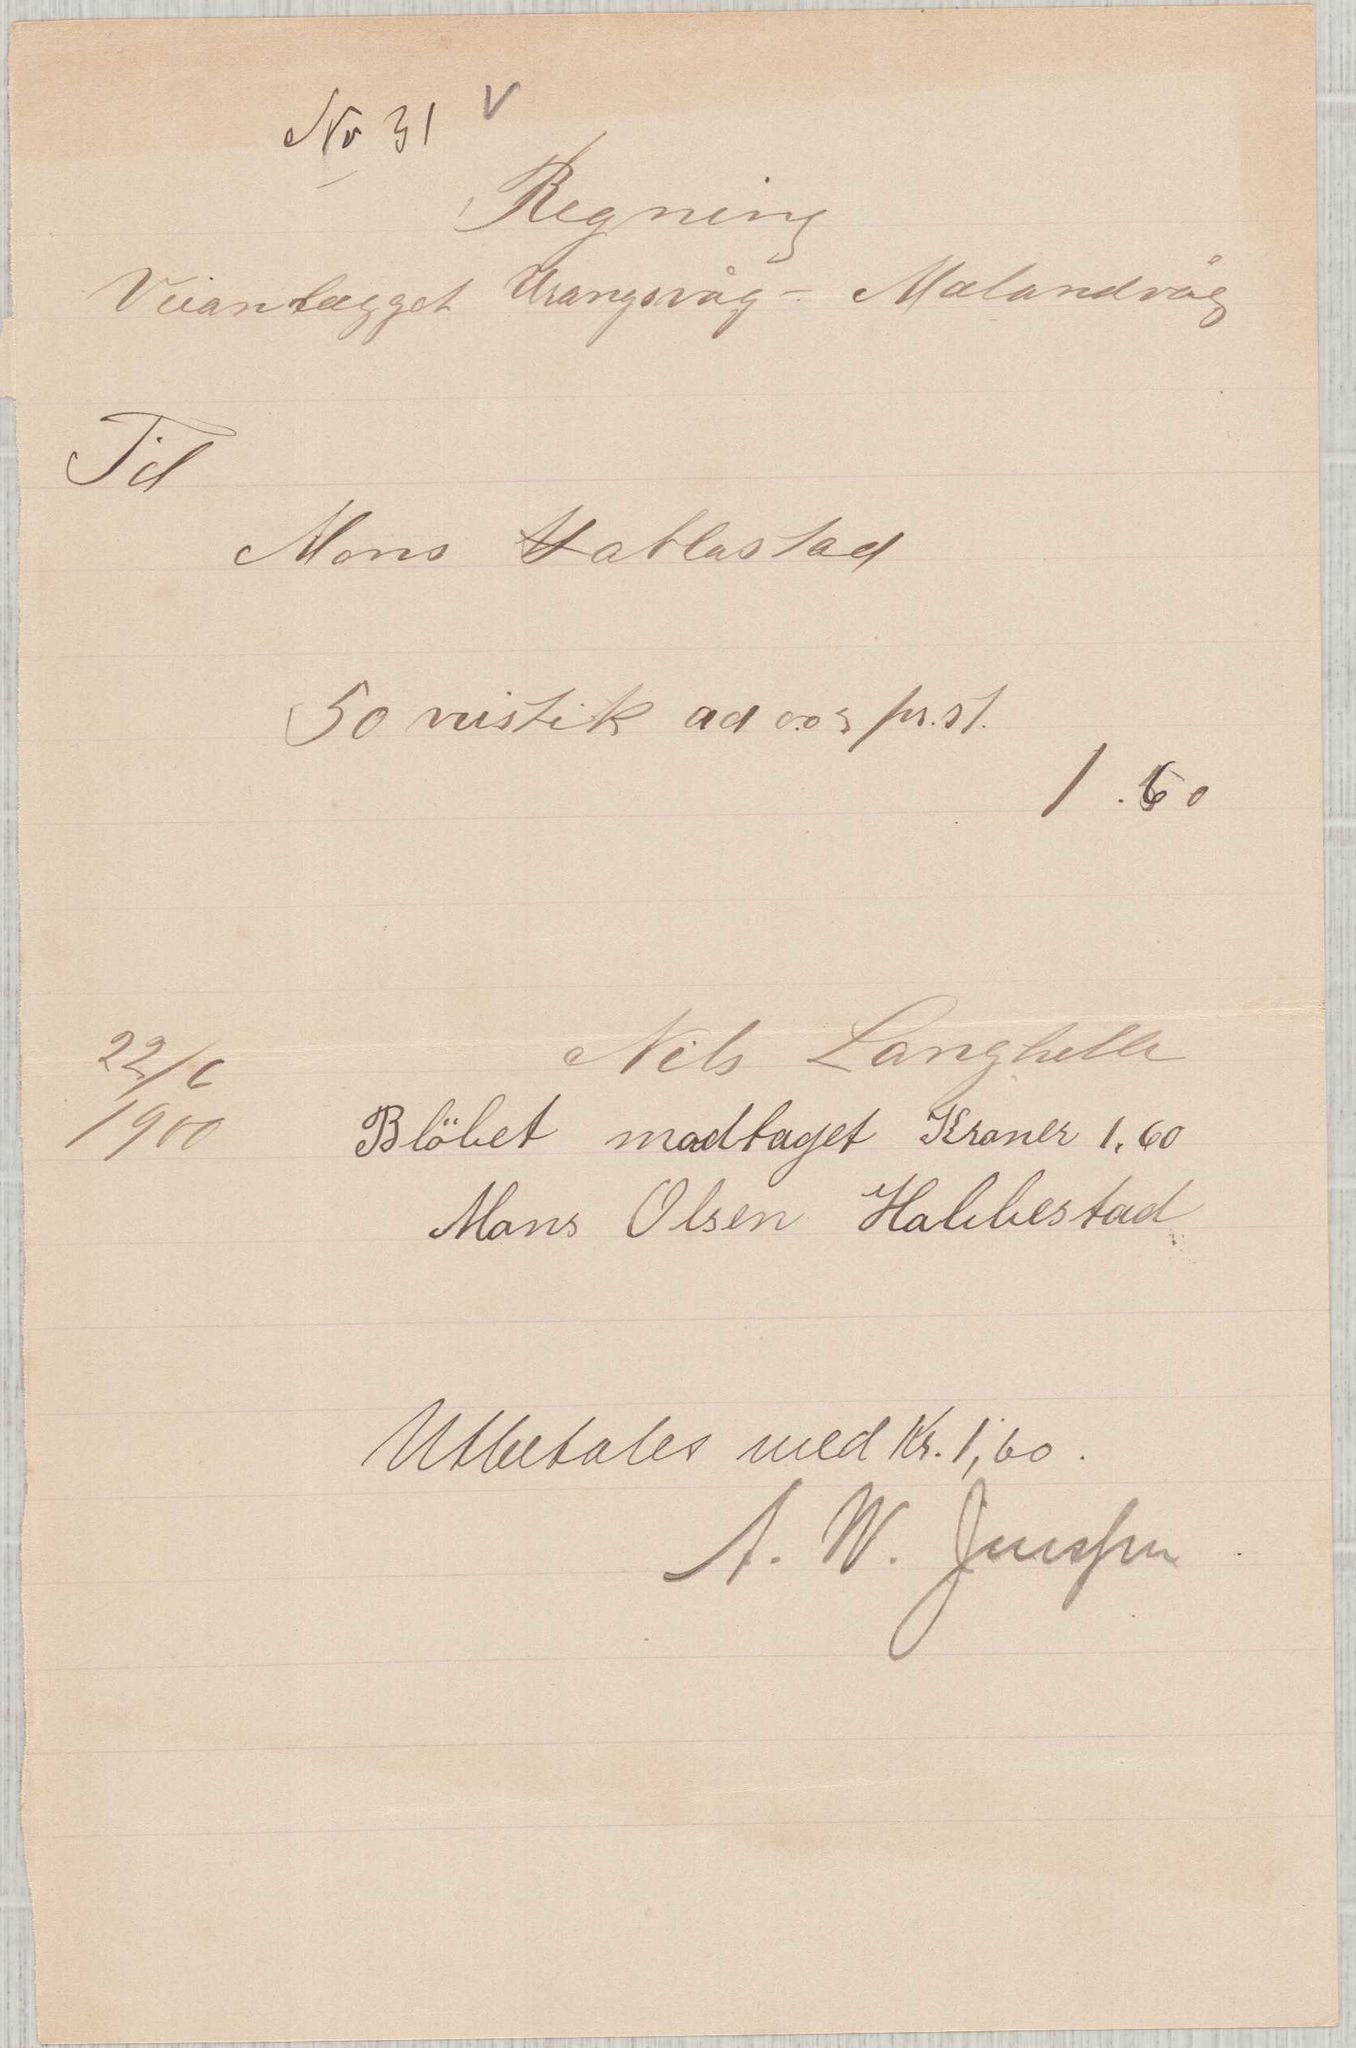 No 31 V
Regning
Veianlægget Urangsvåg - Mælandvåg
Til
Mons Habbestad
50 veistik ad 0.03 pr. st.
1.60
22/6 Nils Langhelle
1900 Blöbet modtaget Kroner 1.60
Mons Olsen Habbestad
Utbetales med Kr. 1,60.
A. W. Janssen